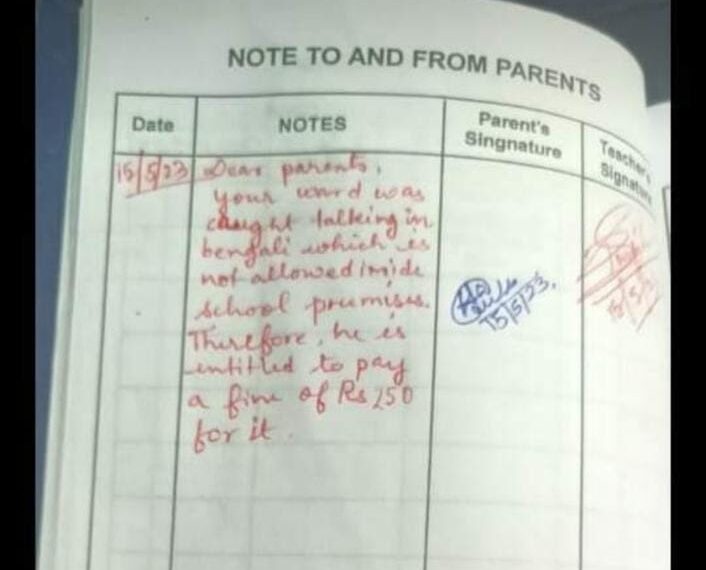 NOTE TO AND FROM PARENTS
Date
NOTES
Parent's
Singnature
Teacher's
Signature
15/5/23
Dear parents,
your ward was
caught talking in
bengali which is
not allowed inside
school premises.
Therefore, he is
entitled to pay
a fine of Rs 250
for it.
15/5/23.